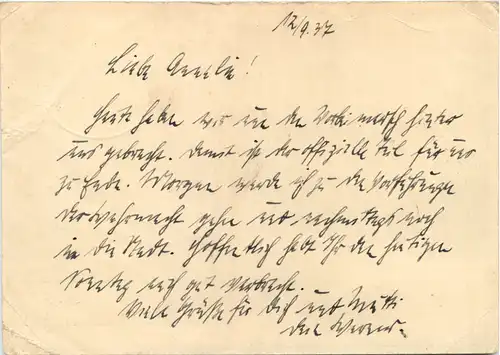 12/9.37
Liebe Annelie!
Heute haben wir nun den Vorbeimarsch hinter
uns gebracht. Damit ist der offizielle Teil für uns
zu Ende. Morgen werde ich zu den Vorführungen
der Wehrmacht gehen und nachmittags noch
in die Stadt. Hoffentlich habt Ihr den heutigen
Sonntag auch gut verbracht.
Viele Grüße für Dich und Mutti
Dein Werner.